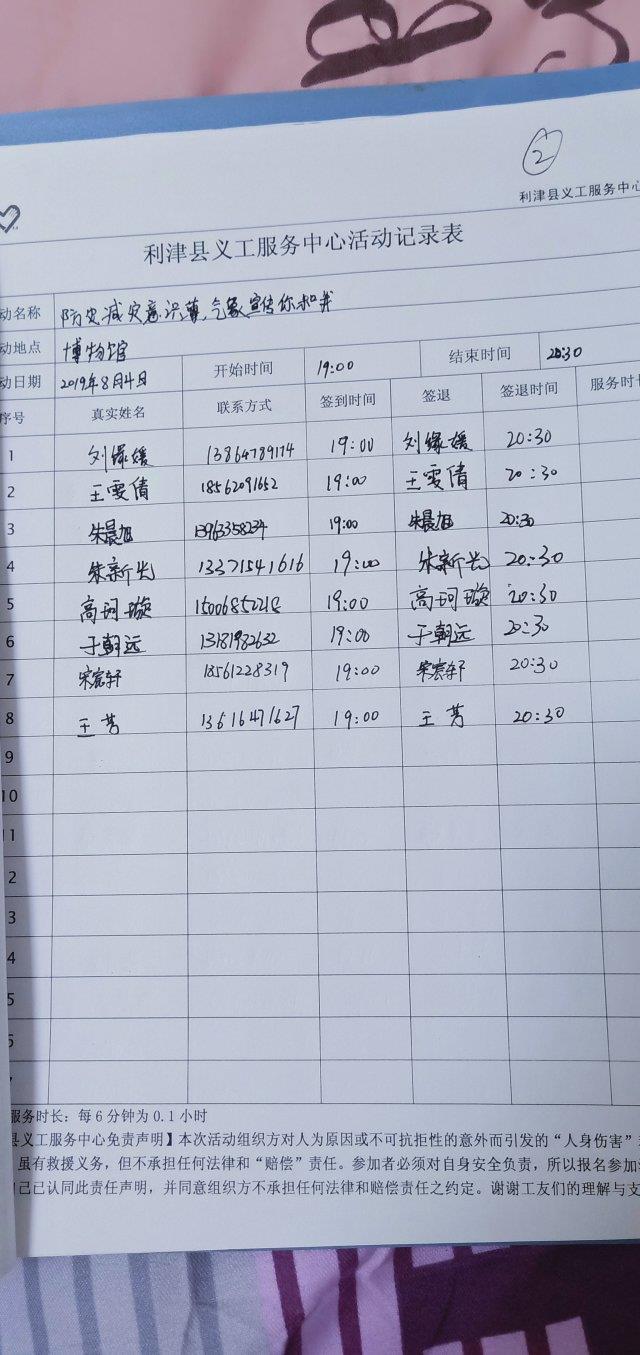 ②
利津县义工服务中心
利津县义工服务中心活动记录表
动名称 防灾减灾意识薄,气象宣传你和我
动地点 博物馆
动日期 2019年8月4日 开始时间 19:00 结束时间 20:30
序号 真实姓名 联系方式 签到时间 签退 签退时间 服务时长
1 刘缘媛 13864789174 19:00 刘缘媛 20:30
2 王雯倩 18562091652 19:00 王雯倩 20:30
3 朱晨旭 13963358234 19:00 朱晨旭 20:30
4 朱新光 13371541616 19:00 朱新光 20:30
5 高珂璇 15006850218 19:00 高珂璇 20:30
6 于朝远 13181982632 19:00 于朝远 20:30
7 宋宸轩 18561228319 19:00 宋宸轩 20:30
8 王芳 13616471627 19:00 王芳 20:30
9
10
11
2
3
4
5
服务时长:每6分钟为0.1小时
县义工服务中心免责声明】本次活动组织方对人为原因或不可抗拒性的意外而引发的“人身伤害”
虽有救援义务,但不承担任何法律和“赔偿”责任。参加者必须对自身安全负责,所以报名参加
己已认同此责任声明,并同意组织方不承担任何法律和赔偿责任之约定。谢谢工友们的理解与支